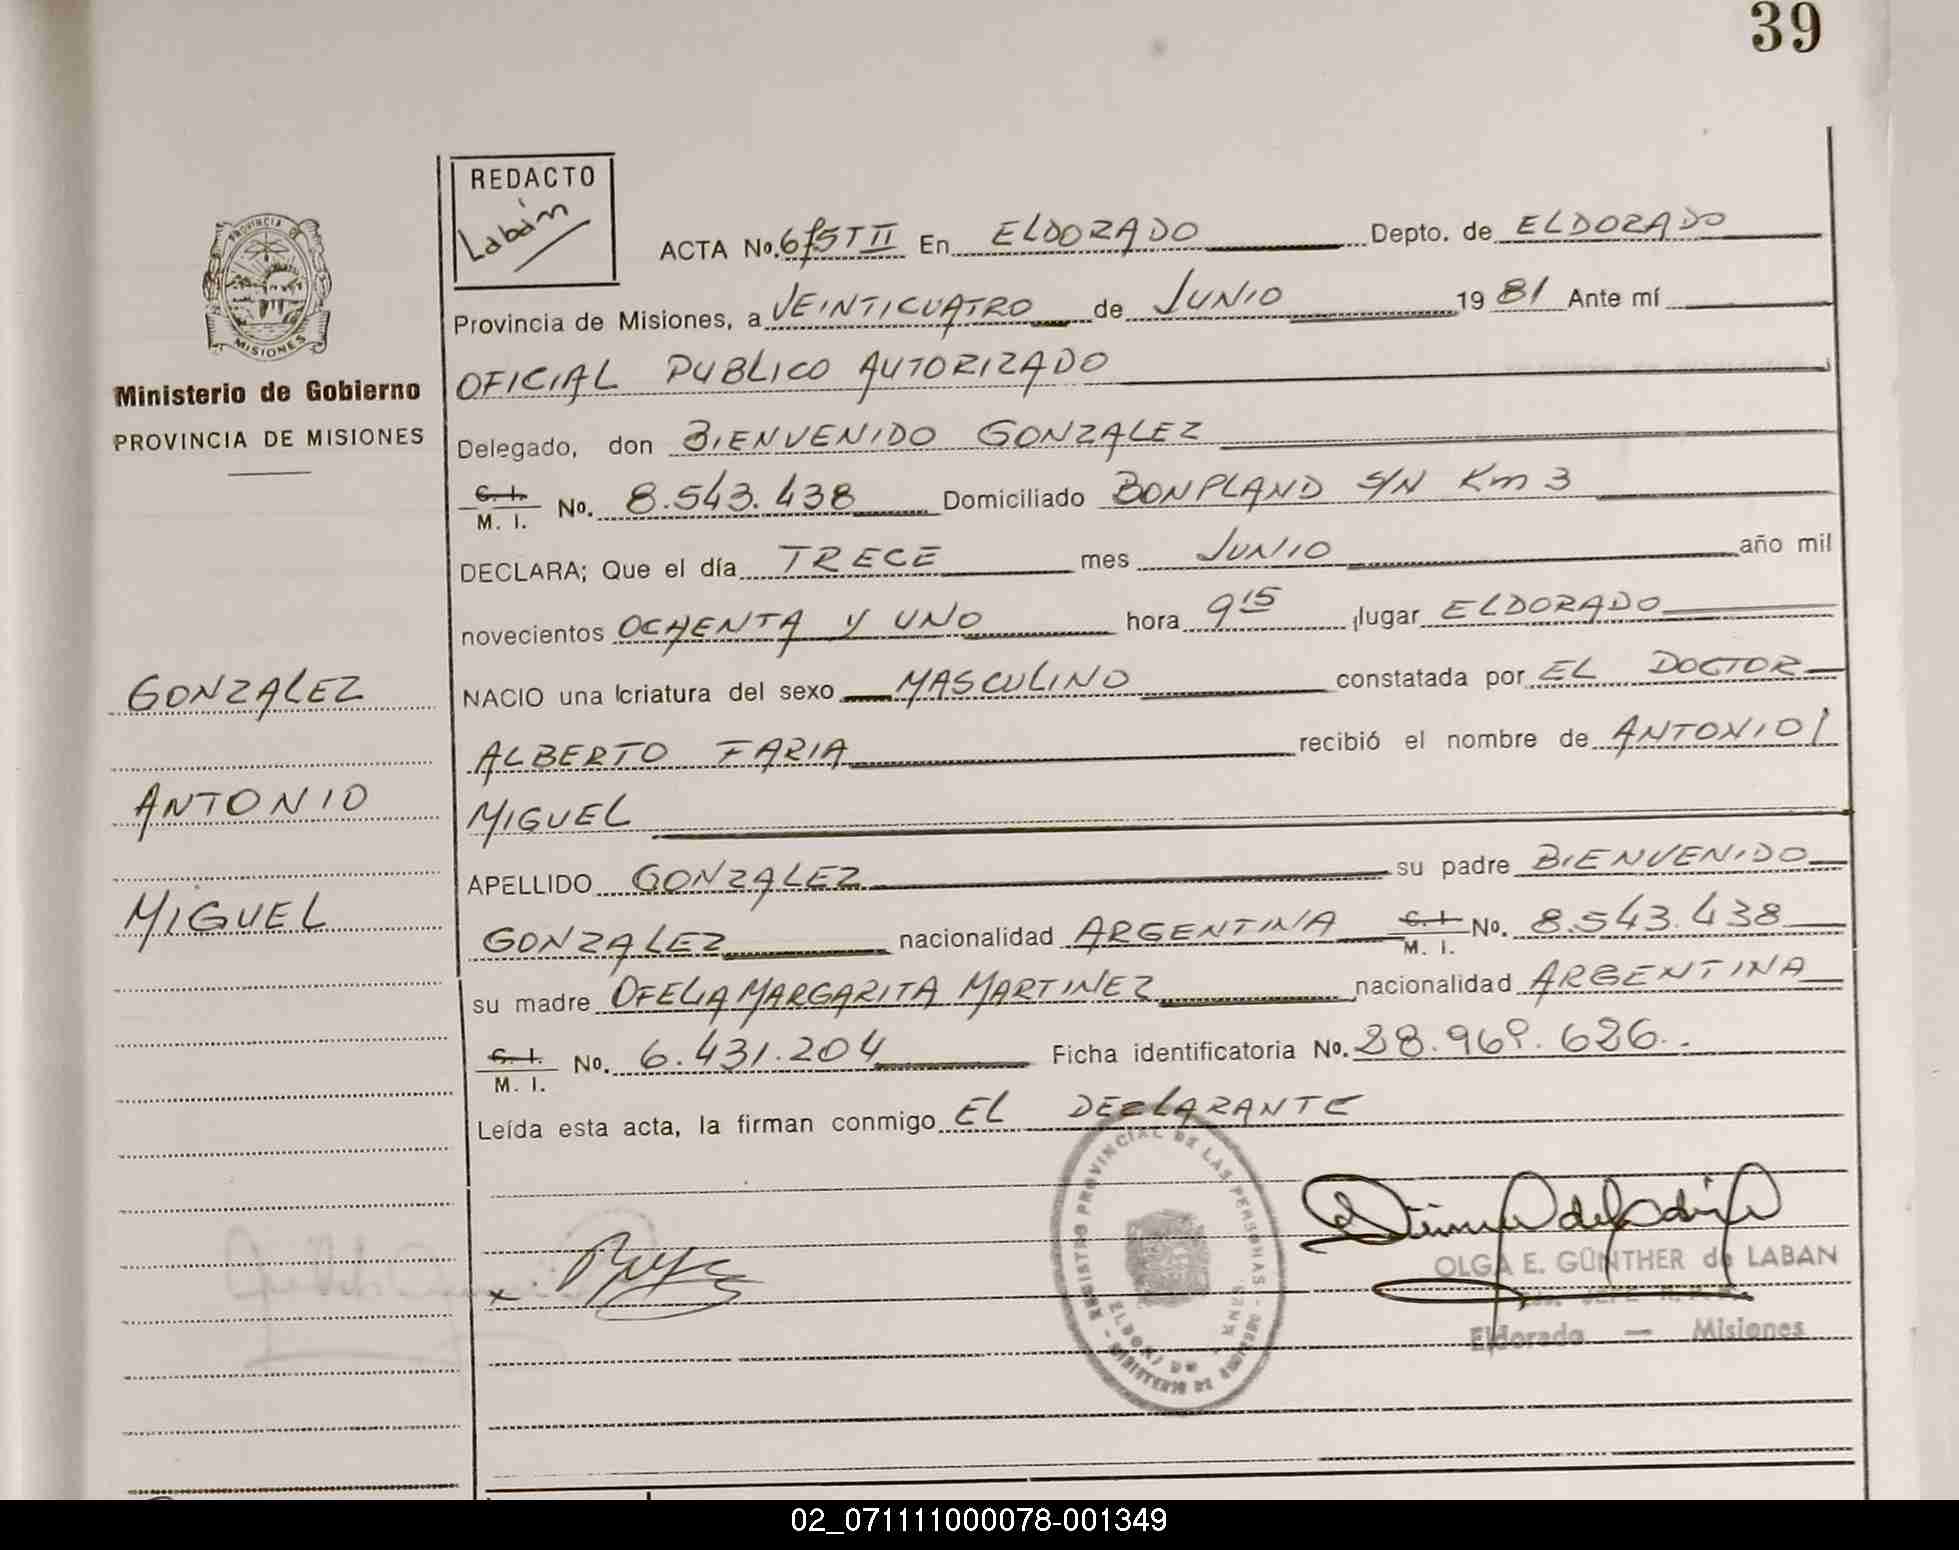 39
REDACTO
Labán
ACTA No. 675 T II En ELDORADO Depto. de ELDORADO
Provincia de Misiones, a VEINTICUATRO de JUNIO 1981 Ante mí
OFICIAL PUBLICO AUTORIZADO
Delegado, don BIENVENIDO GONZALEZ
C. I.
M. I. No. 8.543.438 Domiciliado BONPLAND S/N Km 3
DECLARA; Que el día TRECE mes JUNIO año mil
novecientos OCHENTA Y UNO hora 9 15 lugar ELDORADO
NACIO una criatura del sexo MASCULINO constatada por EL DOCTOR
ALBERTO FARIA recibió el nombre de ANTONIO
MIGUEL
APELLIDO GONZALEZ su padre BIENVENIDO
GONZALEZ nacionalidad ARGENTINA C. I. M. I. No. 8.543.438
su madre OFELIA MARGARITA MARTINEZ nacionalidad ARGENTINA
C. I.
M. I. No. 6.431.204 Ficha identificatoria No. 28.969.626.
Leída esta acta, la firman conmigo EL DECLARANTE
PROVINCIA DE
MISIONES
Ministerio de Gobierno
PROVINCIA DE MISIONES
GONZALEZ
ANTONIO
MIGUEL
REGISTRO PROVINCIAL DE LAS PERSONAS
OLGA E. GÜNTHER de LABAN
Eldorado — Misiones
02_071111000078-001349